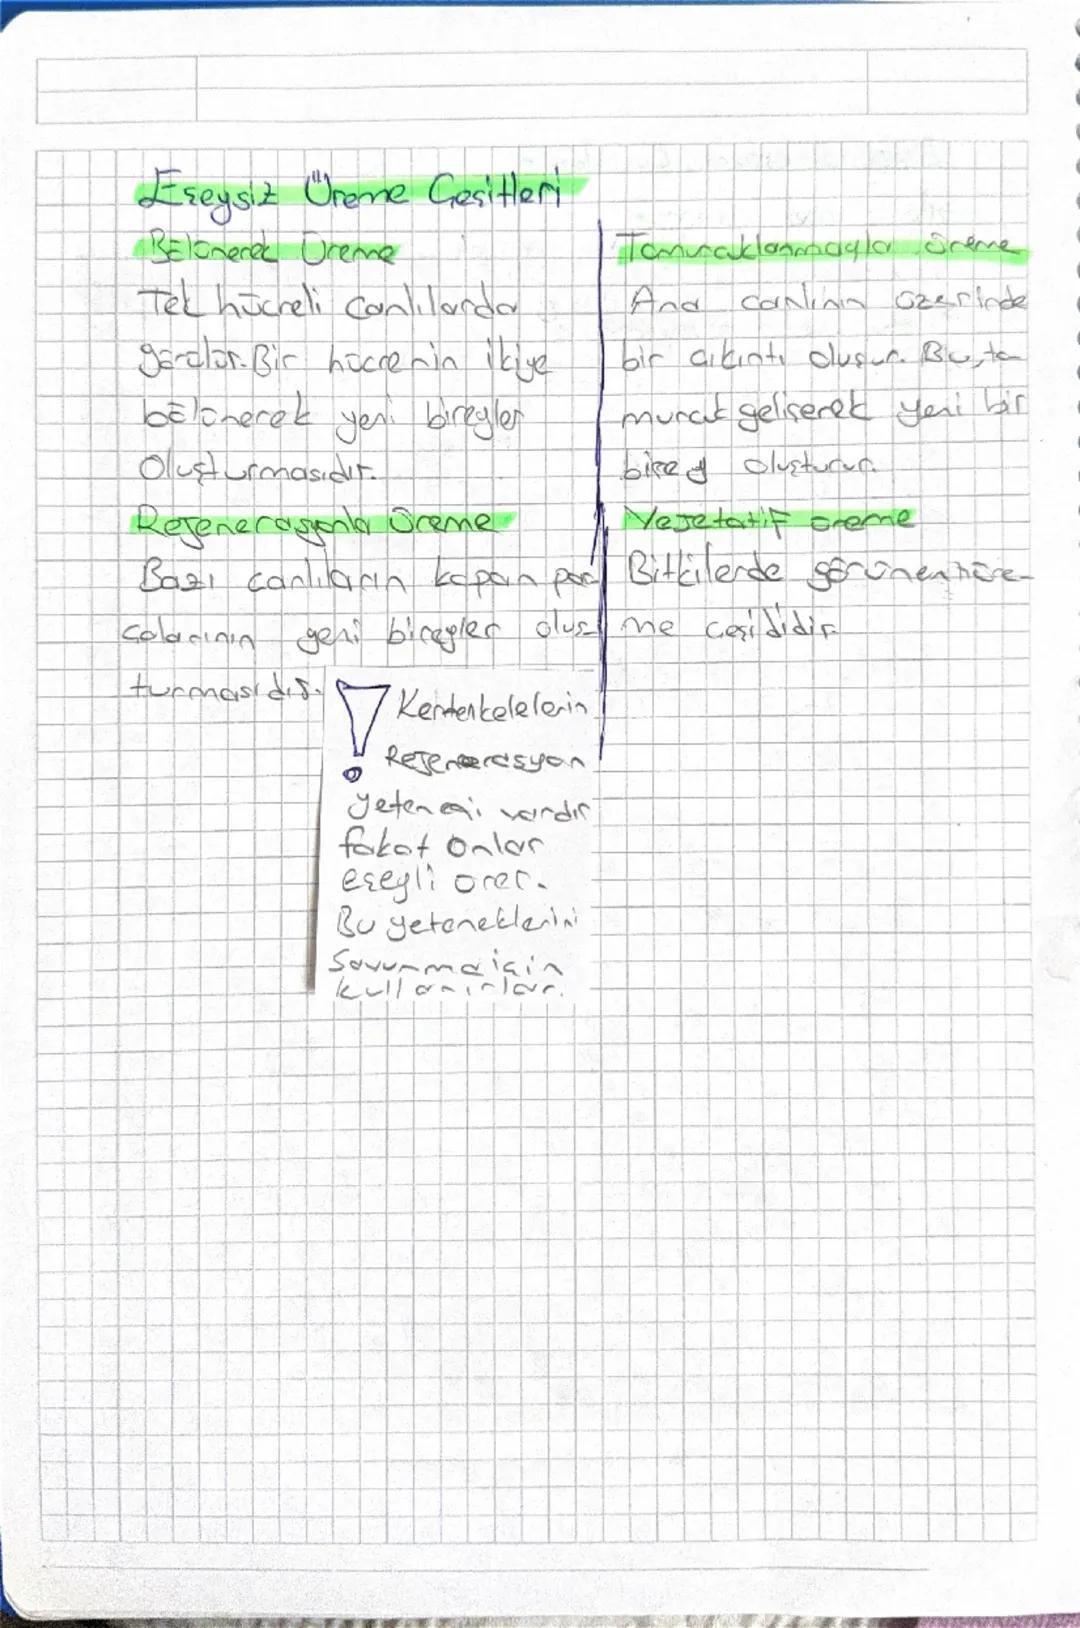 Eşeysiz Üreme Çeşitleri
Bölünerek Üreme
Tek hücreli canlılarda
görülür. Bir hücrenin ikiye
bölünerek yeni bireyler
Oluşturmasıdır.
Rejenerasyonla Üreme
Bazı canlıların kopan par
çalarının yeni bireyler oluş
turmasıdır.
! Kertenkelelerin
Rejenerasyon
yeteneği vardır
fakat onlar
eşeyli ürer.
Bu yeteneklerini
Savunma için
kullanırlar.
Tomurcuklanmayla üreme
Ana canlının üzerinde
bir çıkıntı oluşur. Bu, to
murcuk gelişerek yeni bir
birey oluşturur.
Vejetatif üreme
Bitkilerde görünen üre-
me çeşididir.